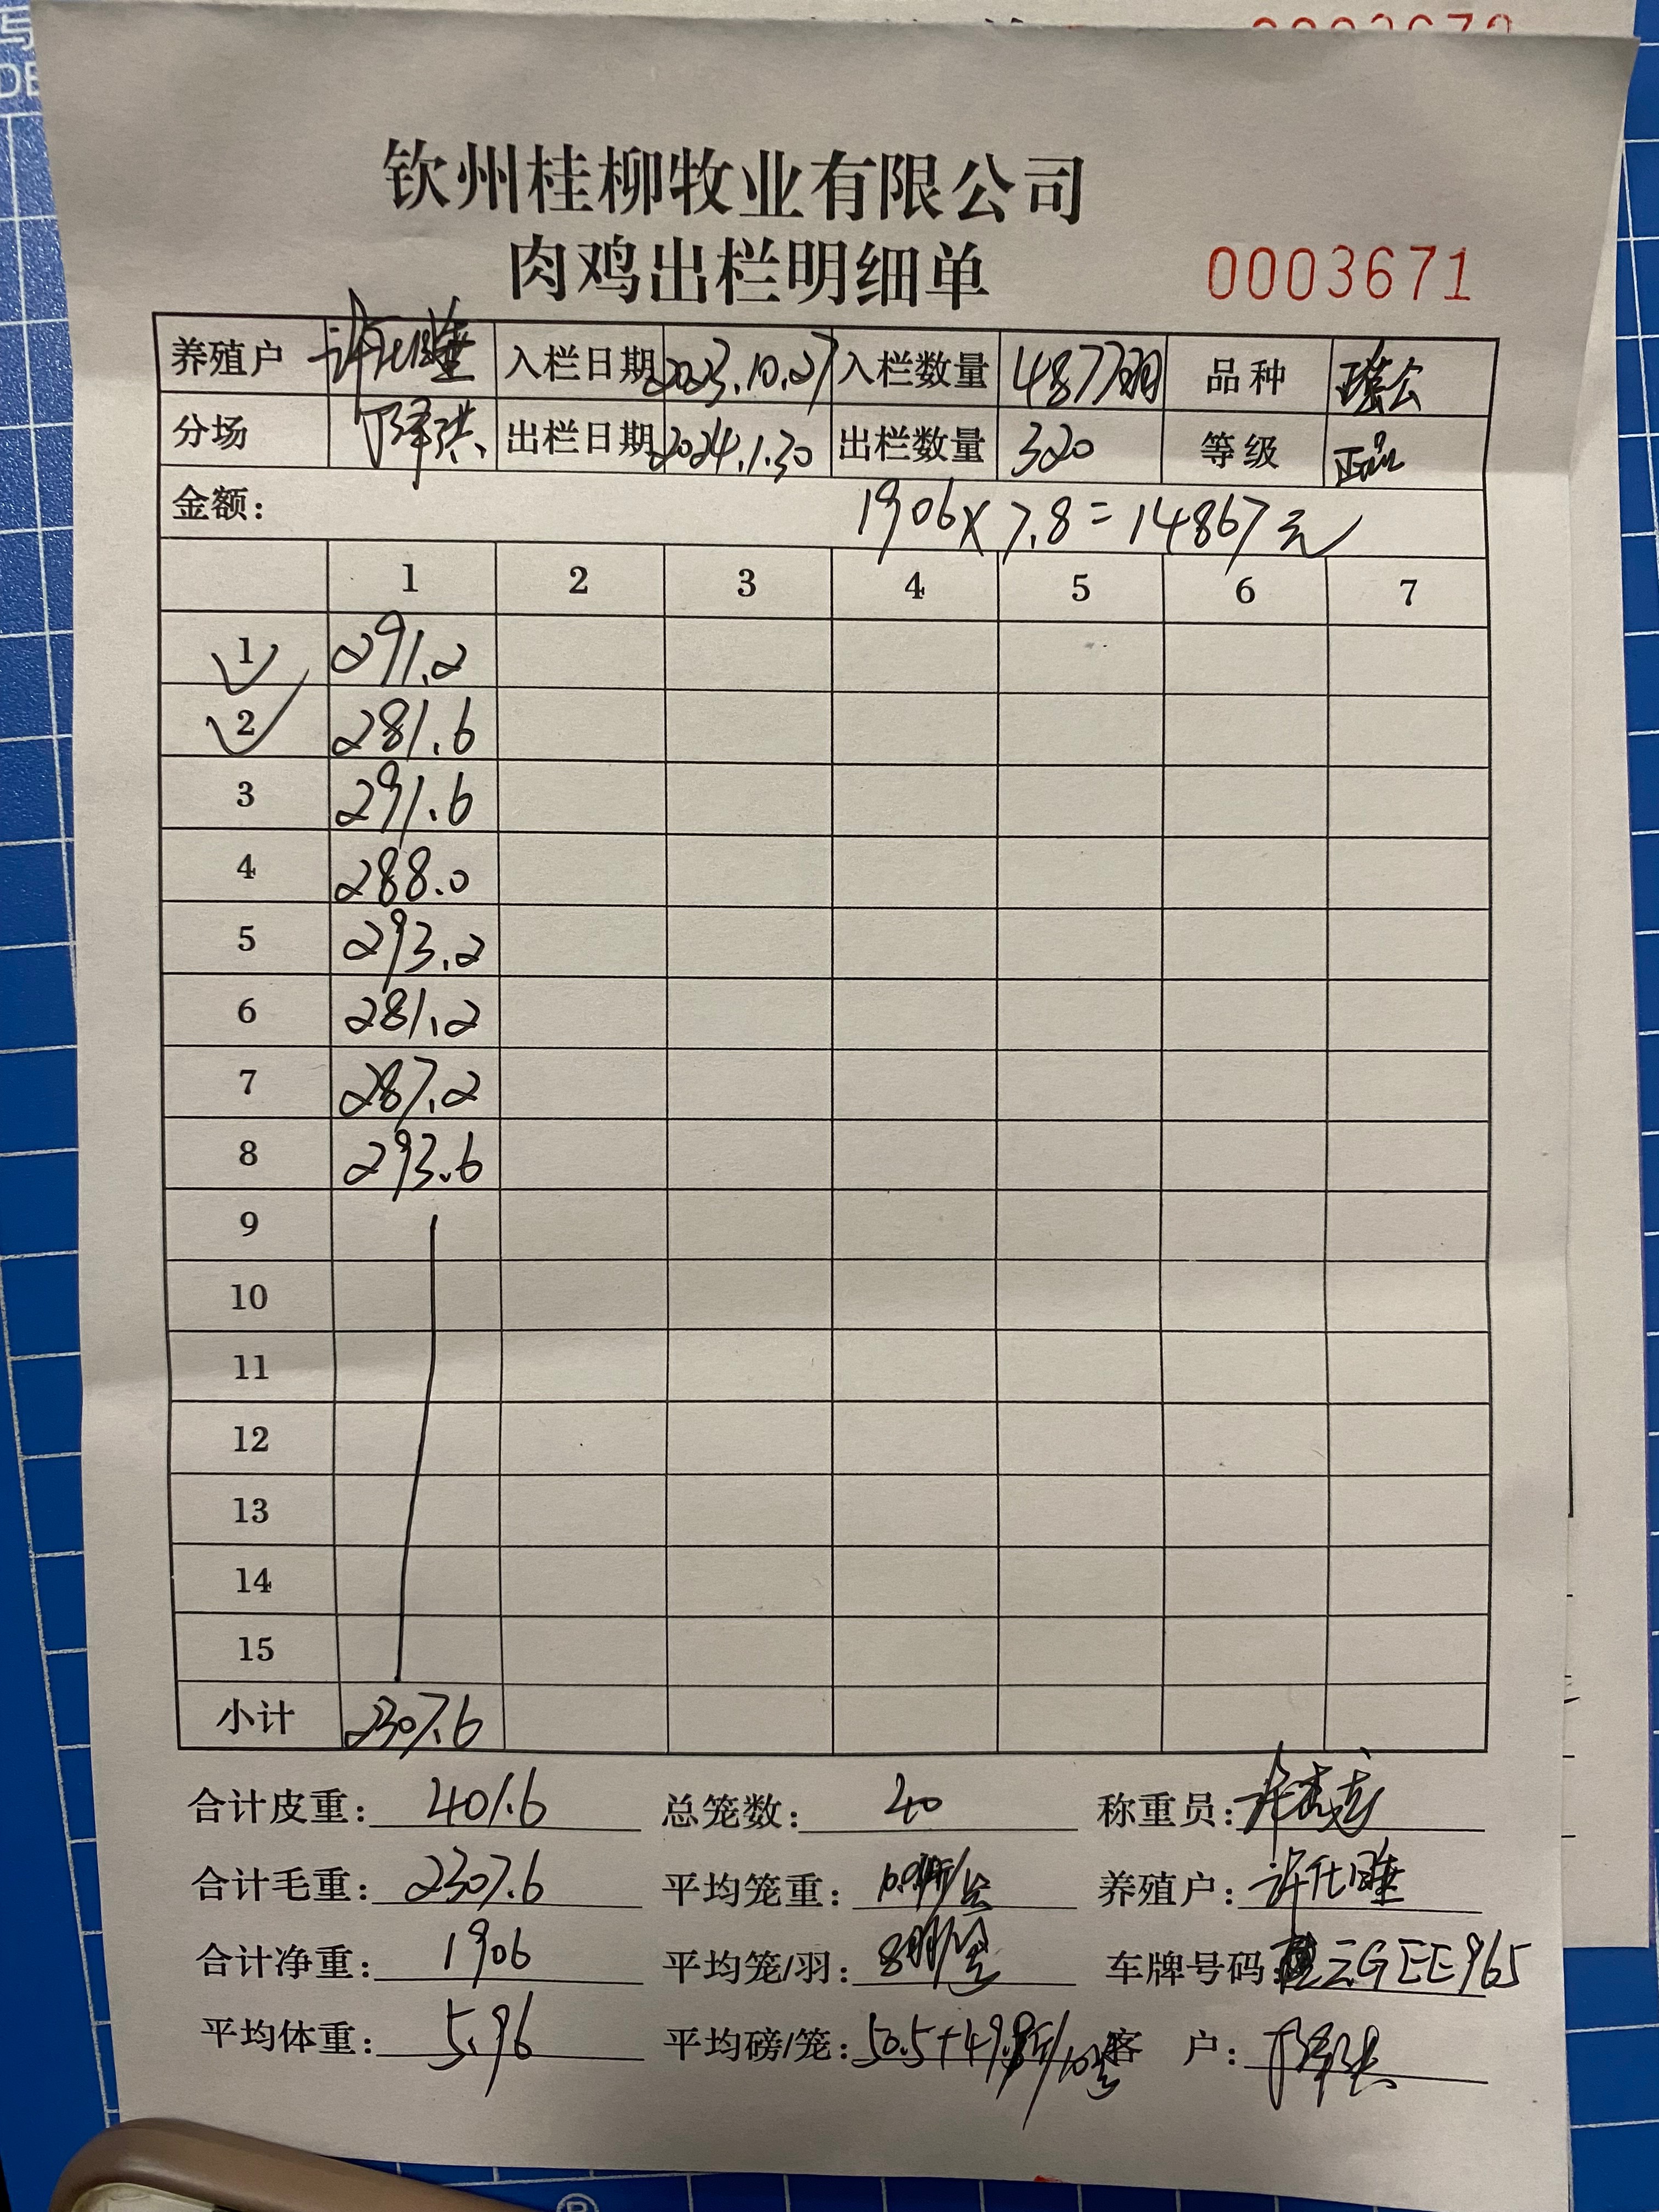 钦州桂柳牧业有限公司
肉鸡出栏明细单 0003671
养殖户 许仕雄 入栏日期 2023.10.27 入栏数量 4877羽 品种 瑶公
分场 出栏日期 2024.1.30 出栏数量 320 等级 正品
金额: 1906×7.8=14867元
1 2 3 4 5 6 7
1 291.2
2 281.6
3 291.6
4 288.0
5 293.2
6 281.2
7 287.2
8 293.6
9
10
11
12
13
14
15
小计 2307.6
合计皮重: 401.6 总笼数: 40 称重员:
合计毛重: 2307.6 平均笼重: 养殖户: 许仕雄
合计净重: 1906 平均笼/羽: 8羽/笼 车牌号码: 云GEE965
平均体重: 5.96 平均磅/笼: 客 户: